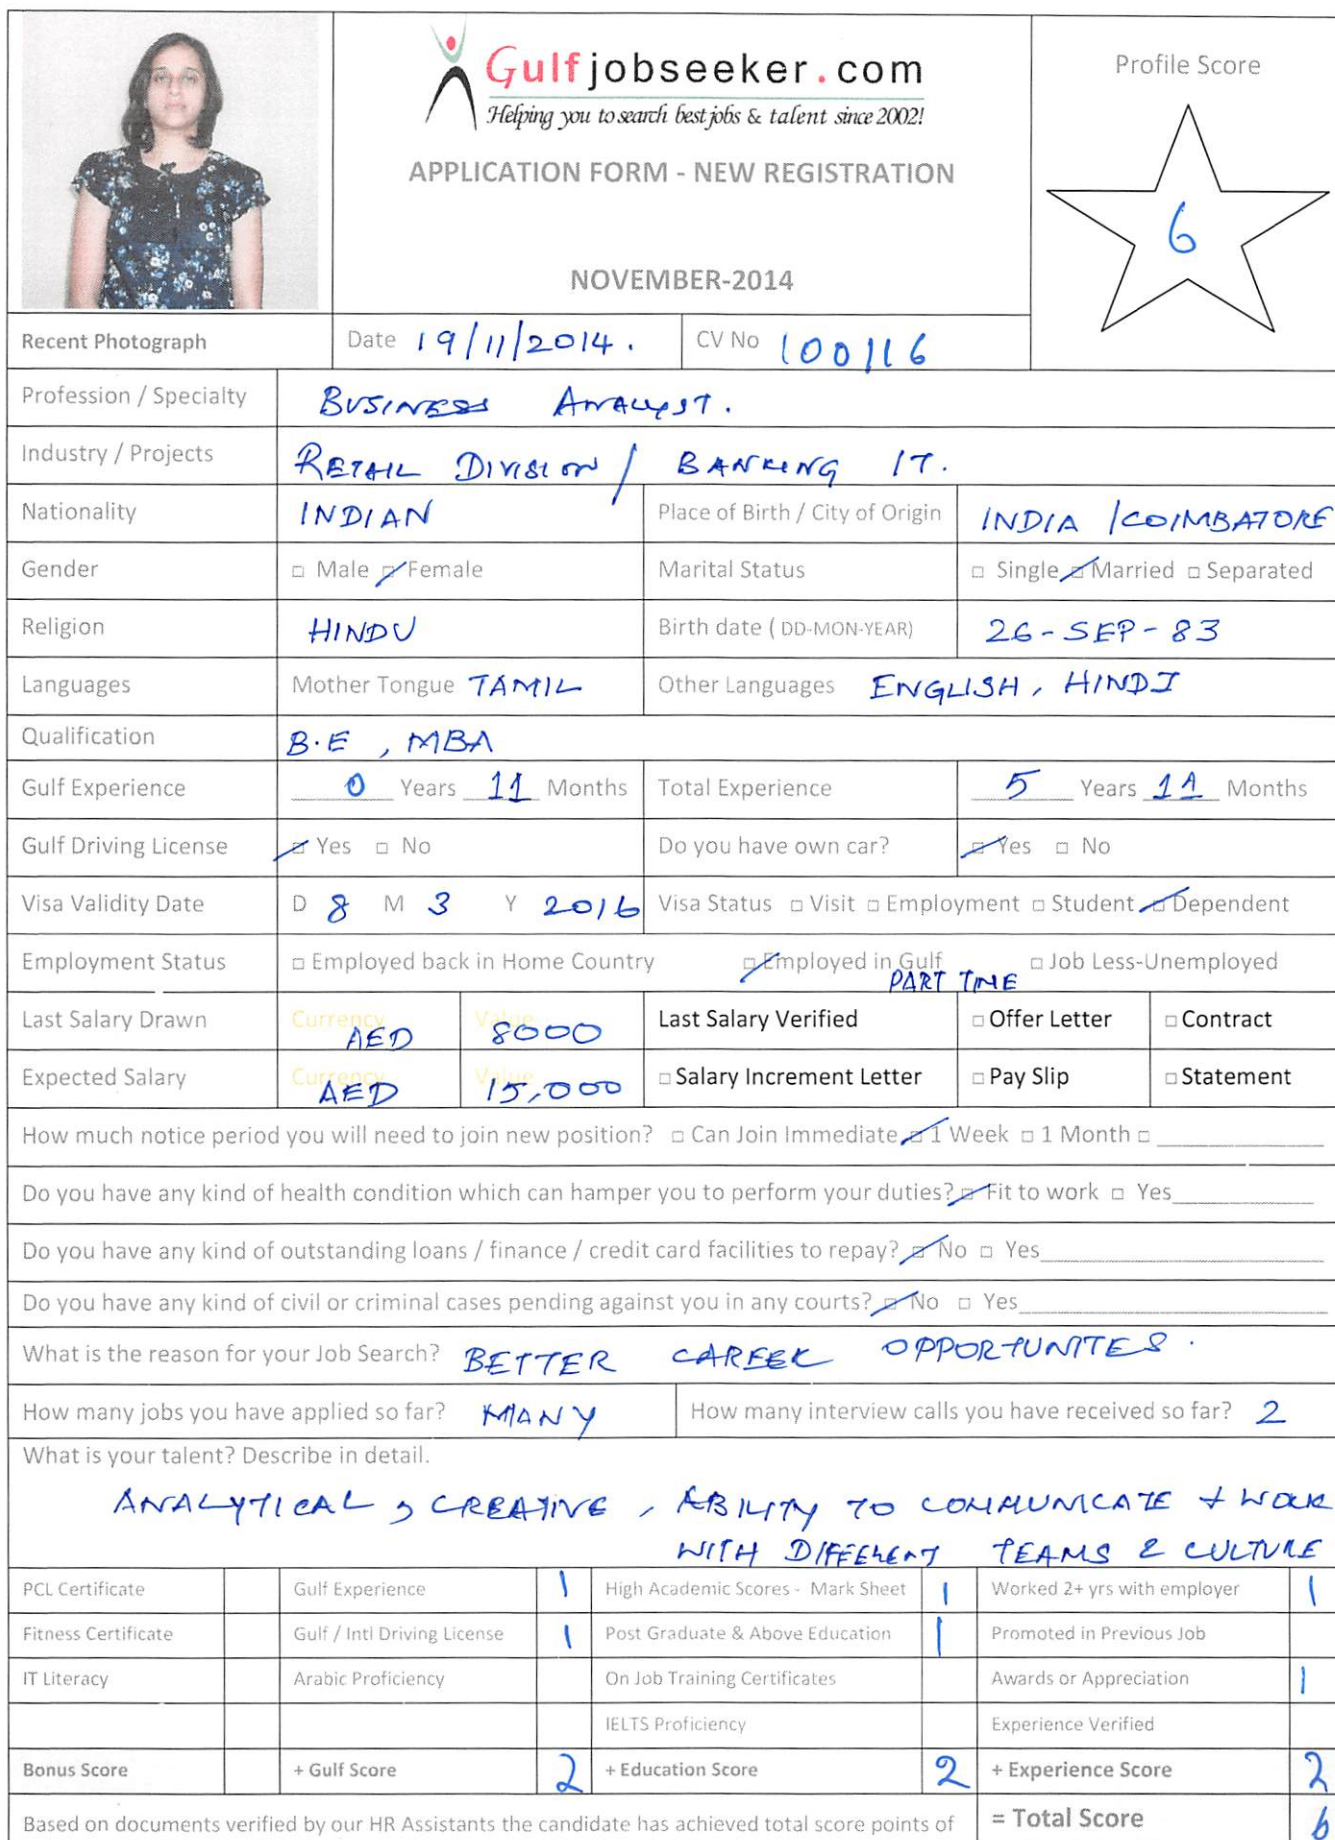 Gulfjobseeker.com
Helping you to search best jobs & talent since 2002!
APPLICATION FORM - NEW REGISTRATION
NOVEMBER-2014
Profile Score
6
Recent Photograph Date 19/11/2014. CV No 100116
Profession / Specialty BUSINESS ANALYST.
Industry / Projects RETAIL DIVISION / BANKING IT.
Nationality INDIAN Place of Birth / City of Origin INDIA / COIMBATORE
Gender □ Male ☑ Female Marital Status □ Single ☑ Married □ Separated
Religion HINDU Birth date ( DD-MON-YEAR) 26-SEP-83
Languages Mother Tongue TAMIL Other Languages ENGLISH, HINDI
Qualification B.E , MBA
Gulf Experience 0 Years 11 Months Total Experience 5 Years 11 Months
Gulf Driving License ☑ Yes □ No Do you have own car? ☑ Yes □ No
Visa Validity Date D 8 M 3 Y 2016 Visa Status □ Visit □ Employment □ Student ☑ Dependent
Employment Status □ Employed back in Home Country ☑ Employed in Gulf □ Job Less-Unemployed
PART TIME
Last Salary Drawn Currency AED Value 8000 Last Salary Verified □ Offer Letter □ Contract
Expected Salary Currency AED Value 15,000 □ Salary Increment Letter □ Pay Slip □ Statement
How much notice period you will need to join new position? □ Can Join Immediate ☑ 1 Week □ 1 Month □
Do you have any kind of health condition which can hamper you to perform your duties? ☑ Fit to work □ Yes
Do you have any kind of outstanding loans / finance / credit card facilities to repay? ☑ No □ Yes
Do you have any kind of civil or criminal cases pending against you in any courts? ☑ No □ Yes
What is the reason for your Job Search? BETTER CAREER OPPORTUNITES.
How many jobs you have applied so far? MANY How many interview calls you have received so far? 2
What is your talent? Describe in detail.
ANALYTICAL, CREATIVE, ABILITY TO COMMUNICATE & WORK
WITH DIFFERENT TEAMS & CULTURE
PCL Certificate Gulf Experience 1 High Academic Scores - Mark Sheet 1 Worked 2+ yrs with employer 1
Fitness Certificate Gulf / Intl Driving License 1 Post Graduate & Above Education 1 Promoted in Previous Job
IT Literacy Arabic Proficiency On Job Training Certificates Awards or Appreciation 1
IELTS Proficiency Experience Verified
Bonus Score + Gulf Score 2 + Education Score 2 + Experience Score 2
Based on documents verified by our HR Assistants the candidate has achieved total score points of = Total Score 6